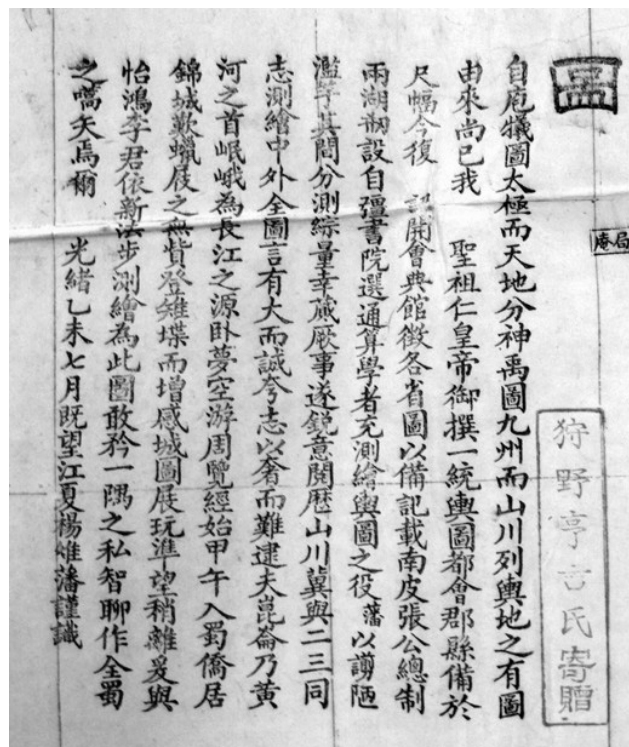 圖
自庖犧圖太極而天地分神禹圖九州而山川列輿地之有圖
由來尚已我 聖祖仁皇帝御撰一統輿圖都會郡縣備於
尺幅今復 詔開會典館徵各省圖以備記載南皮張公總制
兩湖剏設自彊書院選通算學者充測繪輿圖之役藩以謭陋
濫竽其間分測綜量幸蕆厥事遂銳意閱歷山川冀與二三同
志測繪中外全圖言有大而誠夸志以奢而難逮夫崑崙乃黃
河之首岷峨為長江之源卧夢空游周覽經始甲午入蜀僑居
錦城歎蠟屐之無貲登雉堞而增感城圖展玩準望稍離爰與
怡鴻李君依新法步測繪為此圖敢矜一隅之私智聊作全蜀
之嚆矢焉爾 光緒乙未七月既望江夏楊維藩謹識
狩野亨吉氏寄贈